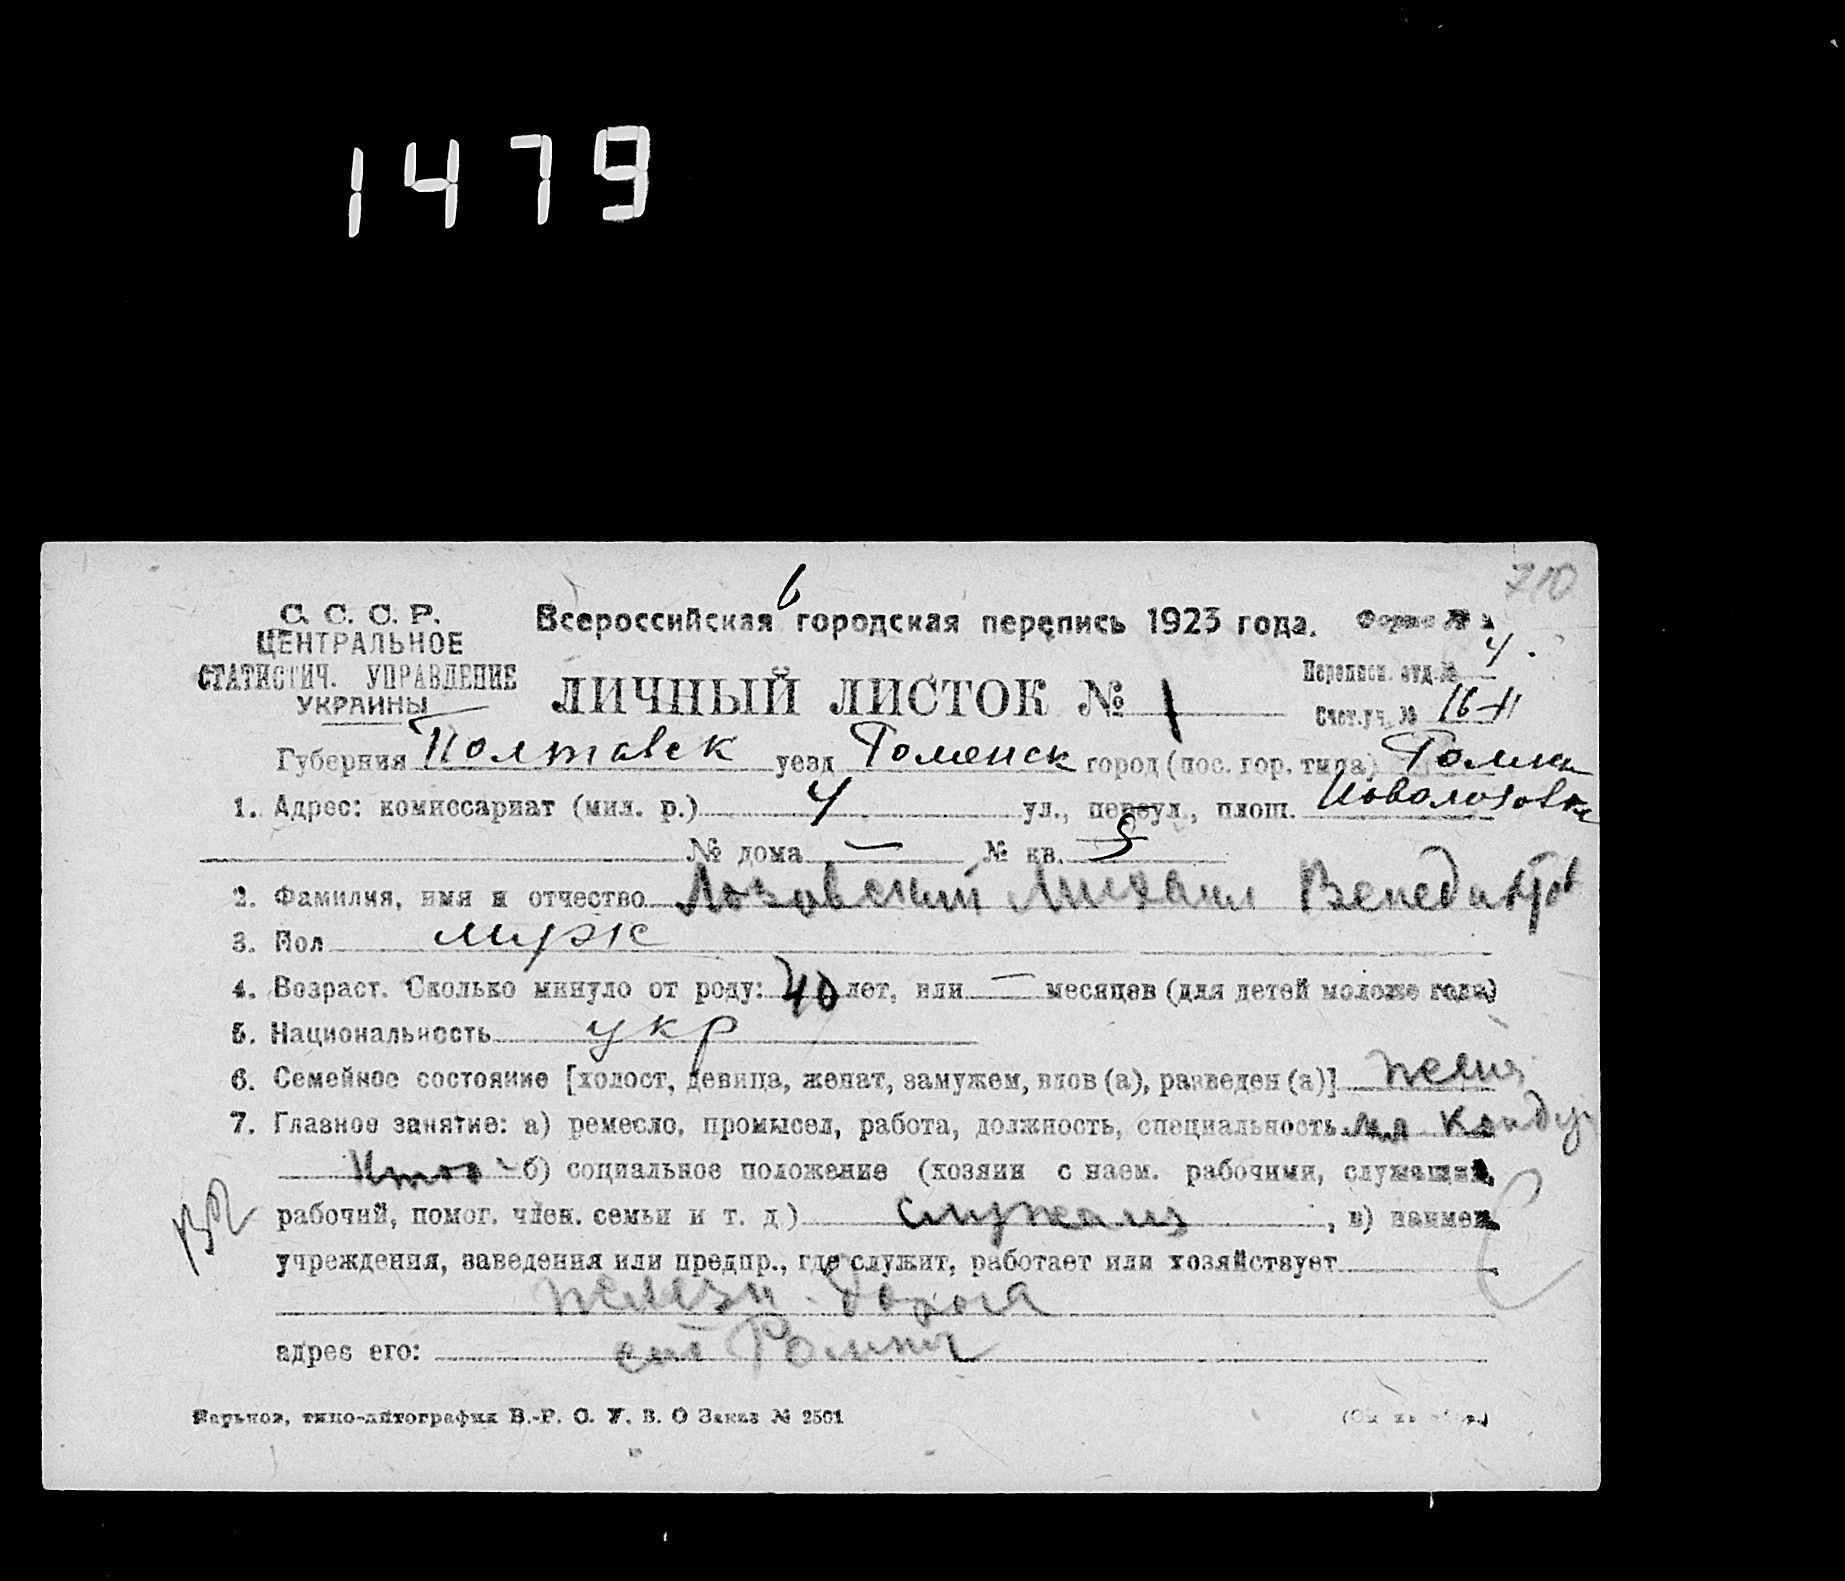 1479
710
6
С. С. С. Р.
ЦЕНТРАЛЬНОЕ
СТАТИСТИЧ. УПРАВЛЕНИЕ
УКРАИНЫ
Всероссийская городская перепись 1923 года.
Форма №
ЛИЧНЫЙ ЛИСТОК № 1
Переписн. отд. № 4
Счет. уч. № 16-II
Губерния Полтавск уезд Роменск город (пос. гор. типа) Ромны
1. Адрес: комиссариат (мил. р.) 4 ул., переул., площ.
№ дома — № кв. 5
2. Фамилия, имя и отчество Лозовский Михаил Венедиктов
3. Пол муж
4. Возраст. Сколько минуло от роду: 40 лет, или — месяцев (для детей моложе года)
5. Национальность укр
6. Семейное состояние [холост, девица, женат, замужем, вдов (а), разведен (а)]
7. Главное занятие: а) ремесло, промысел, работа, должность, специальность конду
ктор б) социальное положение (хозяин с наем. рабочими, служащий,
рабочий, помог. член. семьи и т. д.) служащ , в) наимен.
учреждения, заведения или предпр., где служит, работает или хозяйствует
железн. дорога
адрес его: ст Ромны
Харьков, типо-литография В.-Р. О. У. В. О Заказ № 2501